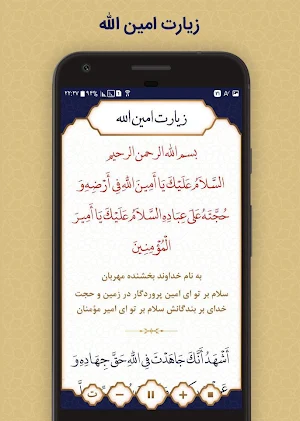 زیارت امین الله
۲۲:۲۷
۹۳%
زیارت امین الله
بسم الله الرحمن الرحیم
اَلسَّلامُ عَلَیْکَ یا اَمینَ اللّهِ فی اَرْضِهِ وَ
حُجَّتَهُ عَلی عِبادِهِ اَلسَّلامُ عَلَیْکَ یا اَمیرَ
الْمُؤْمِنینَ
به نام خداوند بخشنده مهربان
سلام بر تو ای امین پروردگار در زمین و حجت
خدای بر بندگانش سلام بر تو ای امیر مؤمنان
اَشْهَدُ اَنَّکَ جاهَدْتَ فِی اللّهِ حَقَّ جِهادِهِ وَ